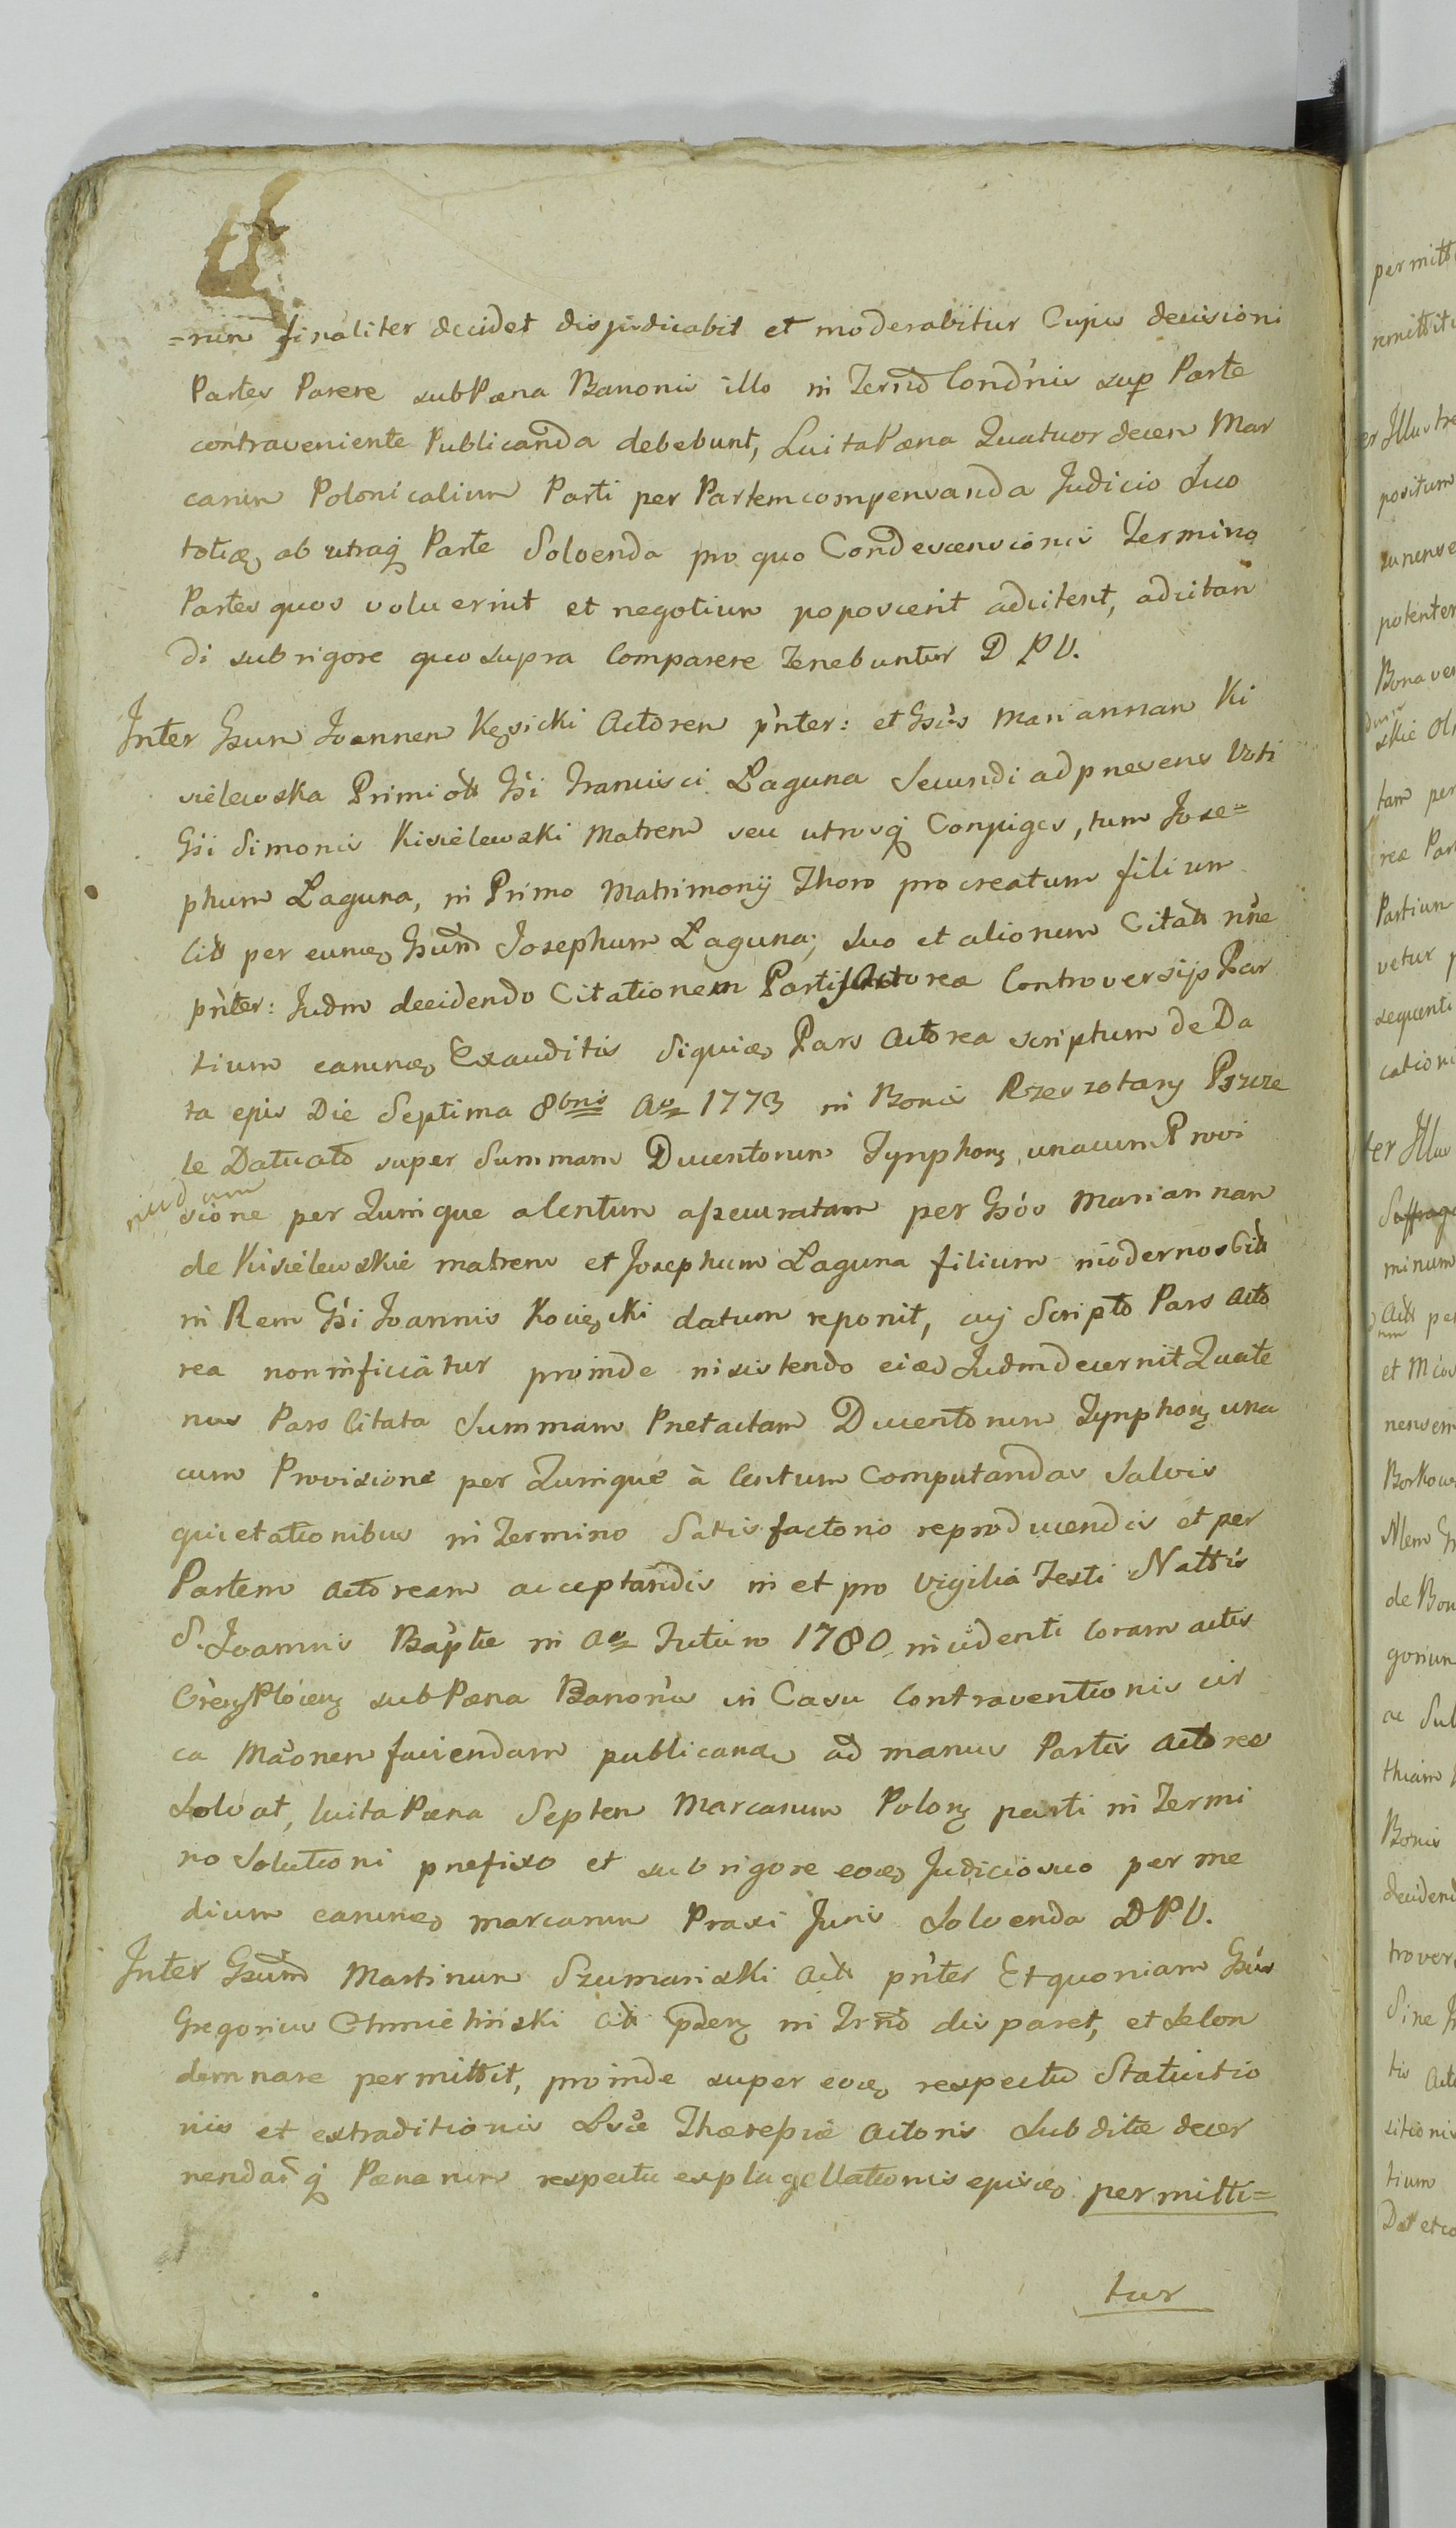 =rum finaliter decidet disjudicabit et moderabitur Cujus decisioni
Partes Parere sub Pæna Banonis illo in Termo Condnis sup Parte
contraveniente Publicanda debebunt, Luita Pæna Quatuordecem Mar
carum Polonicalium Parti per Partem compensanda Judicio Suo
toties ab utraq Parte Solvenda pro quo Condescensionis Termino
Partes quos voluerint et negotium poposcerit adcitent, adcitan
di sub rigore quo supra Comparere Tenebuntur D P V.
Inter Gsum Joannem Kęsicki Actorem pnter: et Gsos Mariannam Ki
sielewska Primi ott Gsi Francisci Laguna Secundi ad pnesens Voti
Gsi Simonis Kisielewski Matrem seu utrosq Conjuges, tum Jose=
phum Laguna, in Primo Matrimonij Thoro procreatum filium
Citt per eund Gsum Josephum Laguna; suo et aliorum Citatt nne
pnter: Judm decidendo Citationem Partis Actorea Controversijs Par
tium earund Exauditis Siquid Pars Actorea scriptum de Da
ta ejus Die Septima 8bris Ao 1773 in Bonis Rzeszotary Pszcze
le Datuato super Summam Ducentorum Tynphon unacum Provi
sione per Quinque a Centum assecuratam per Gsos Mariannam
de Kisielewskie matrem et Josephum Laguna filium modernos Citt
in Rem Gsi Joannis Kocięcki datum reponit, cuj Scripto Pars Acto
rea non inficiatur proinde insistendo eid Judm decernit Quate
nus Pars Citata Summam Pnetactam Ducentorum Tynphon una
cum Provisione per Quinque à Centum Computandas Salvis
quietationibus in Termino Satisfactorio reproducendis et per
Partem Actoream acceptandis in et pro vigilia Festi Nattis
S. Joannis Baptæ in Ao Futuro 1780 incidenti Coram actis
Cren Plocen sub Pæna Banonis in Casu Contraventionis cir
ca Maonem faciendam publicand ad manus Partis Actorea
Solvat, luita Pæna Septem Marcarum Polon parti in Termi
no Solutioni pnefixo et sub rigore eod Judicio suo per me
dium earund marcarum Praxi Juris Solvenda D P V.
Inter Gsum Martinum Szumanski Actt pnter Et quoniam Gsus
Gregorius Chmieliński Citt pden in Trno disparet, et se Con
demnare permittit, proinde super eod respectu Statuitio
nis et extraditionis Lsæ Theresiæ Actoris Subditæ decer
nendarq Pænarum respectu explagellationis ejusd permitti=
tur